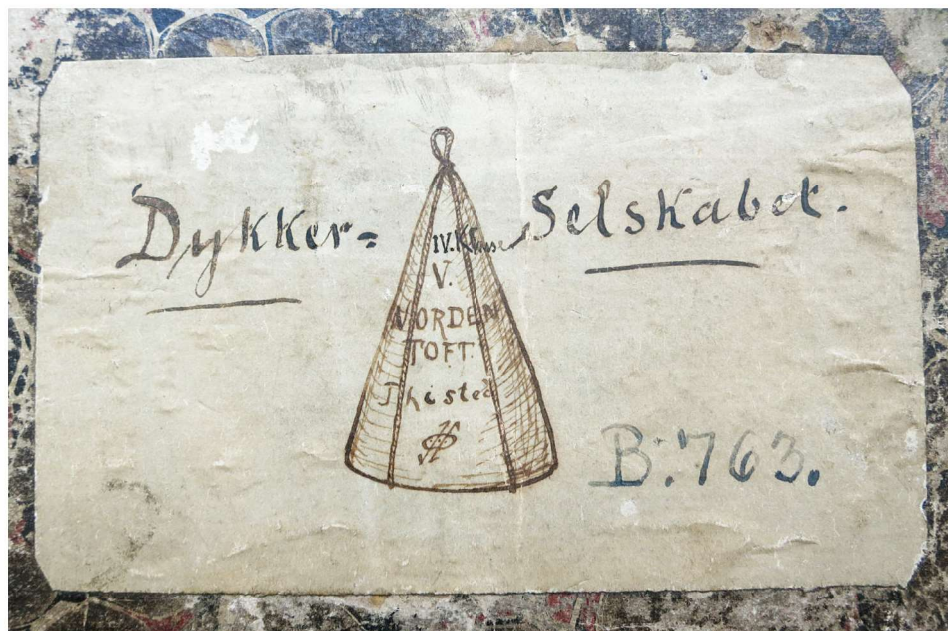 Dykker= Selskabet.
IV. Klasse
V.
NORDEN
TOFT.
Thisted
B.763.